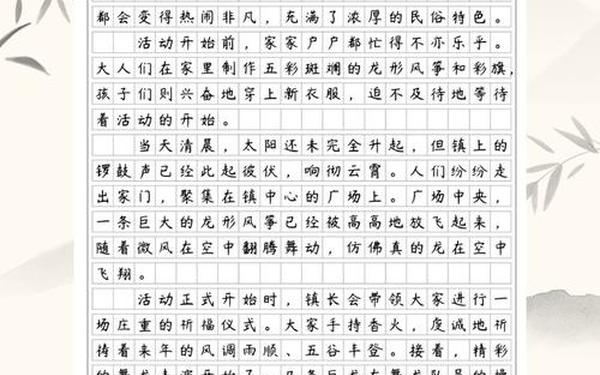 都会变得热闹非凡，充满了浓厚的民俗特色。
活动开始前，家家户户都忙得不亦乐乎。
大人们在家里制作五彩斑斓的龙形风筝和彩旗，
孩子们则兴奋地穿上新衣服，迫不及待地等待
着活动的开始。
当天清晨，太阳还未完全升起，但镇上的
锣鼓声已经此起彼伏，响彻云霄。人们纷纷走
出家门，聚集在镇中心的广场上。广场中央，
一条巨大的龙形风筝已经被高高地放飞起来，
随着微风在空中翻腾舞动，仿佛真的龙在空中
飞翔。
活动正式开始时，镇长会带领大家进行一
场庄重的祈福仪式。大家手持香火，虔诚地祈
祷着来年的风调雨顺、五谷丰登。接着，精彩